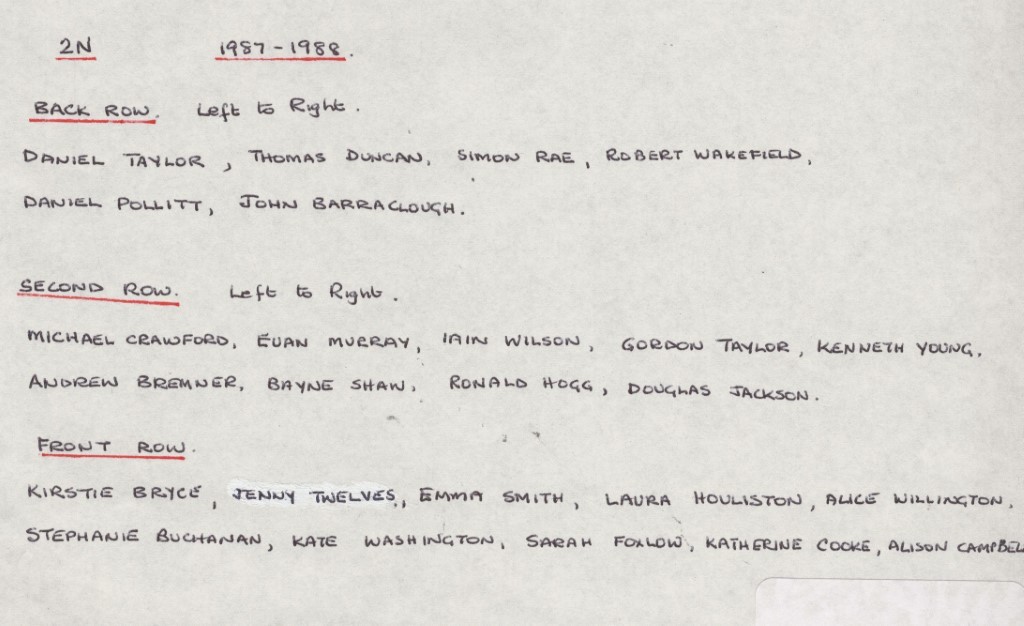 2N 1987-1988.
BACK ROW. Left to Right.
DANIEL TAYLOR, THOMAS DUNCAN, SIMON RAE, ROBERT WAKEFIELD,
DANIEL POLLITT, JOHN BARRACLOUGH.
SECOND ROW. Left to Right.
MICHAEL CRAWFORD, EUAN MURRAY, IAIN WILSON, GORDON TAYLOR, KENNETH YOUNG,
ANDREW BREMNER, BAYNE SHAW, RONALD HOGG, DOUGLAS JACKSON.
FRONT ROW.
KIRSTIE BRYCE, JENNY TWELVES, EMMA SMITH, LAURA HOULISTON, ALICE WILLINGTON,
STEPHANIE BUCHANAN, KATE WASHINGTON, SARAH FOXLOW, KATHERINE COOKE, ALISON CAMPBELL